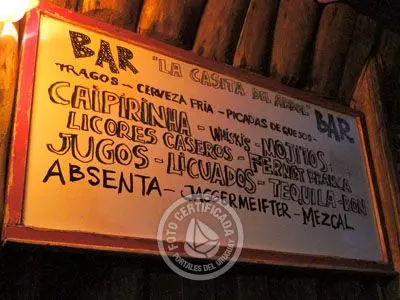 BAR "LA CASITA DEL ARBOL" BAR
TRAGOS - CERVEZA FRIA - PICADAS DE QUESOS -
CAIPIRINHA - WHISKIS - MOJITOS
LICORES CASEROS - FERNET BRANCA
JUGOS - LICUADOS - TEQUILA - RON
ABSENTA - JAGGERMEIFTER - MEZCAL
FOTO CERTIFICADA
PORTALES DEL URUGUAY